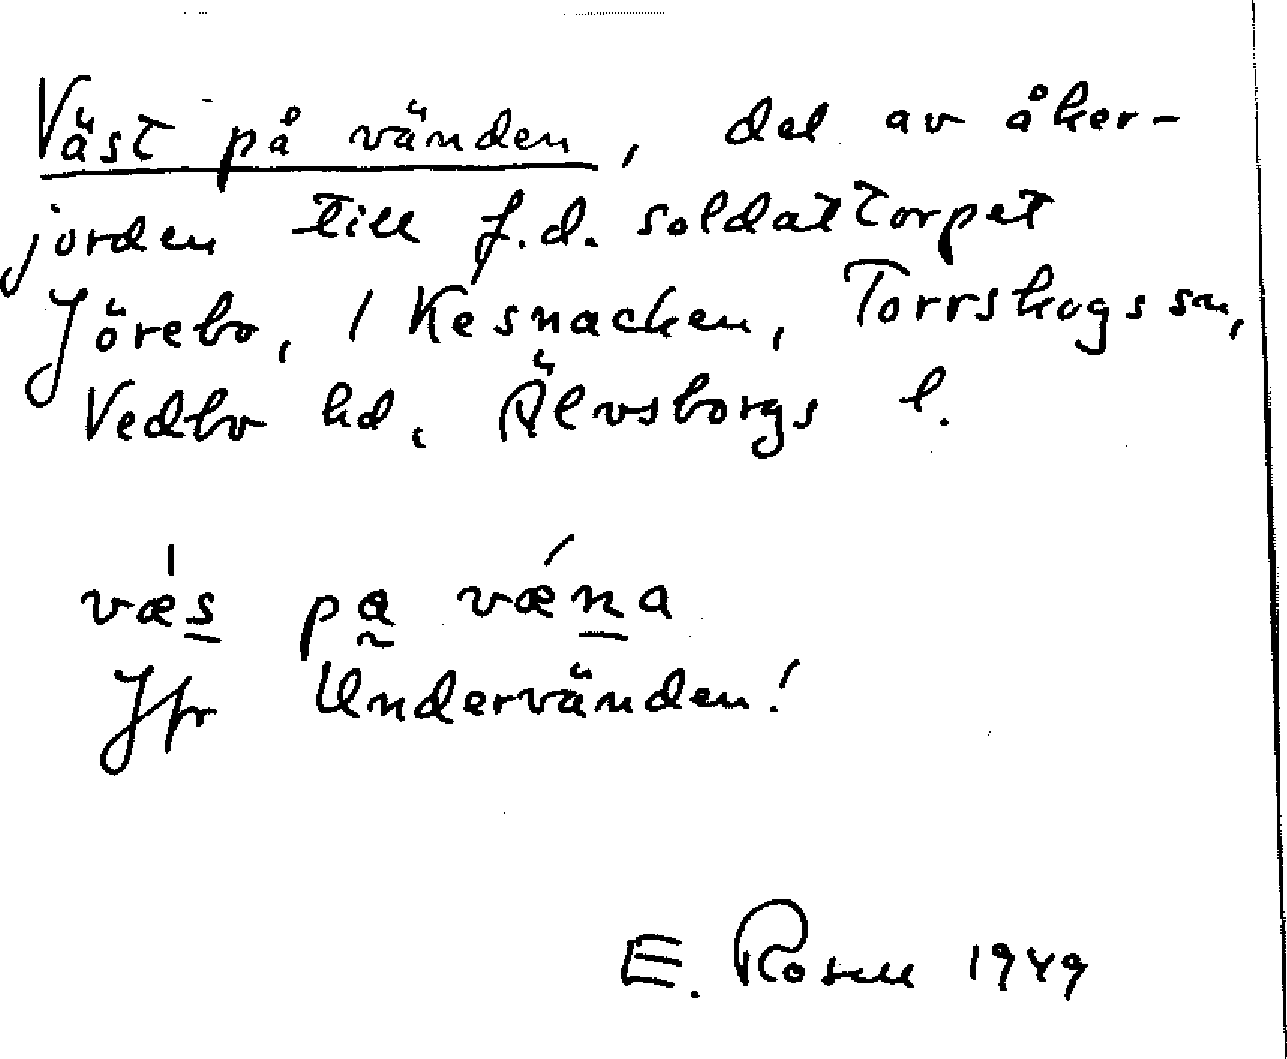 Väst på vänden, del av åker-
jorden till f.d. soldattorpet
Jörebo, 1 Kesnacken, Torrskogs sn,
Vedbo hd, Älvsborgs l.
væ's pa væ'na
Jfr Undervänden!
E. Rosell 1949